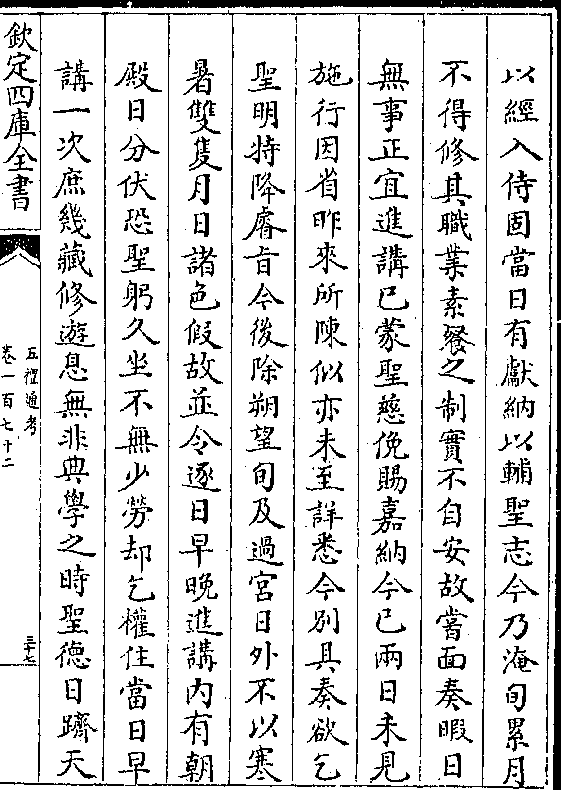 以經入侍固當日有獻納以輔聖志今乃淹旬累月
不得修其職業素餐之制實不自安故嘗面奏暇日
無事正宜進講已蒙聖慈俛賜嘉納今已兩日未見
施行因省昨來所陳似亦未至詳悉今別具奏欲乞
聖明特降睿旨今後除朔望旬及過宮日外不以寒
暑雙隻月日諸色假故並令逐日早晚進講内有朝
殿日分伏恐聖躬久坐不無少勞却乞權住當日早
講一次庶幾藏修遊息無非典學之時聖德日躋天
欽定四庫全書
五禮通考
卷一百七十二
三十七